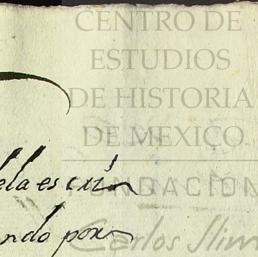 CENTRO DE
ESTUDIOS
DE HISTORIA
DE MEXICO
FUNDACIÓN
Carlos Slim
ando por